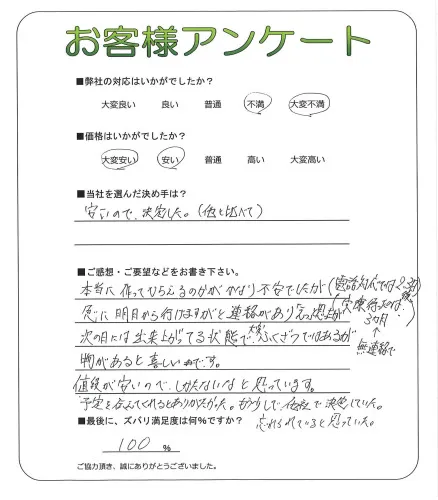 お客様アンケート
■弊社の対応はいかがでしたか？
大変良い 良い 普通 不満 大変不満
■価格はいかがでしたか？
大変安い 安い 普通 高い 大変高い
■当社を選んだ決め手は？
安いので、決定した。（他と比べて）
■ご感想・ご要望などをお書き下さい。
本当に作ってもらえるのかかなり不安でしたが（電話対応では2～3週
急に明日から行けますがと連絡があり
次の日には出来上がってる状態で ふくざつではあるが
物があると喜しいものです。
（実際行くのは！
3ヶ月
↑
無連絡で
値段が安いので、しかたないなと思っています。
予定を言ってくれるとありがたかった。もう少しで、他社で決定していた。
忘れられていると思っていた。
■最後に、ズバリ満足度は何％ですか？
100 %
ご協力頂き、誠にありがとうございました。